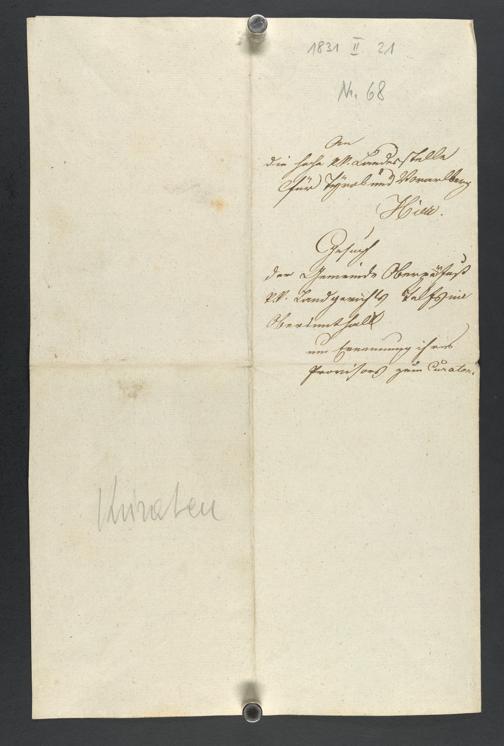 1831 II 21
Nr. 68
An
die hohe k.k. Landesstelle
für Tÿrol und Vorarlberg
Hier.
Gesuch
der Gemeinde Oberpöfuss
k.k. Landgerichts Telfs im
Oberinnthall
um Ernennung ihres
Provisors zum Curaten.
Kuraten